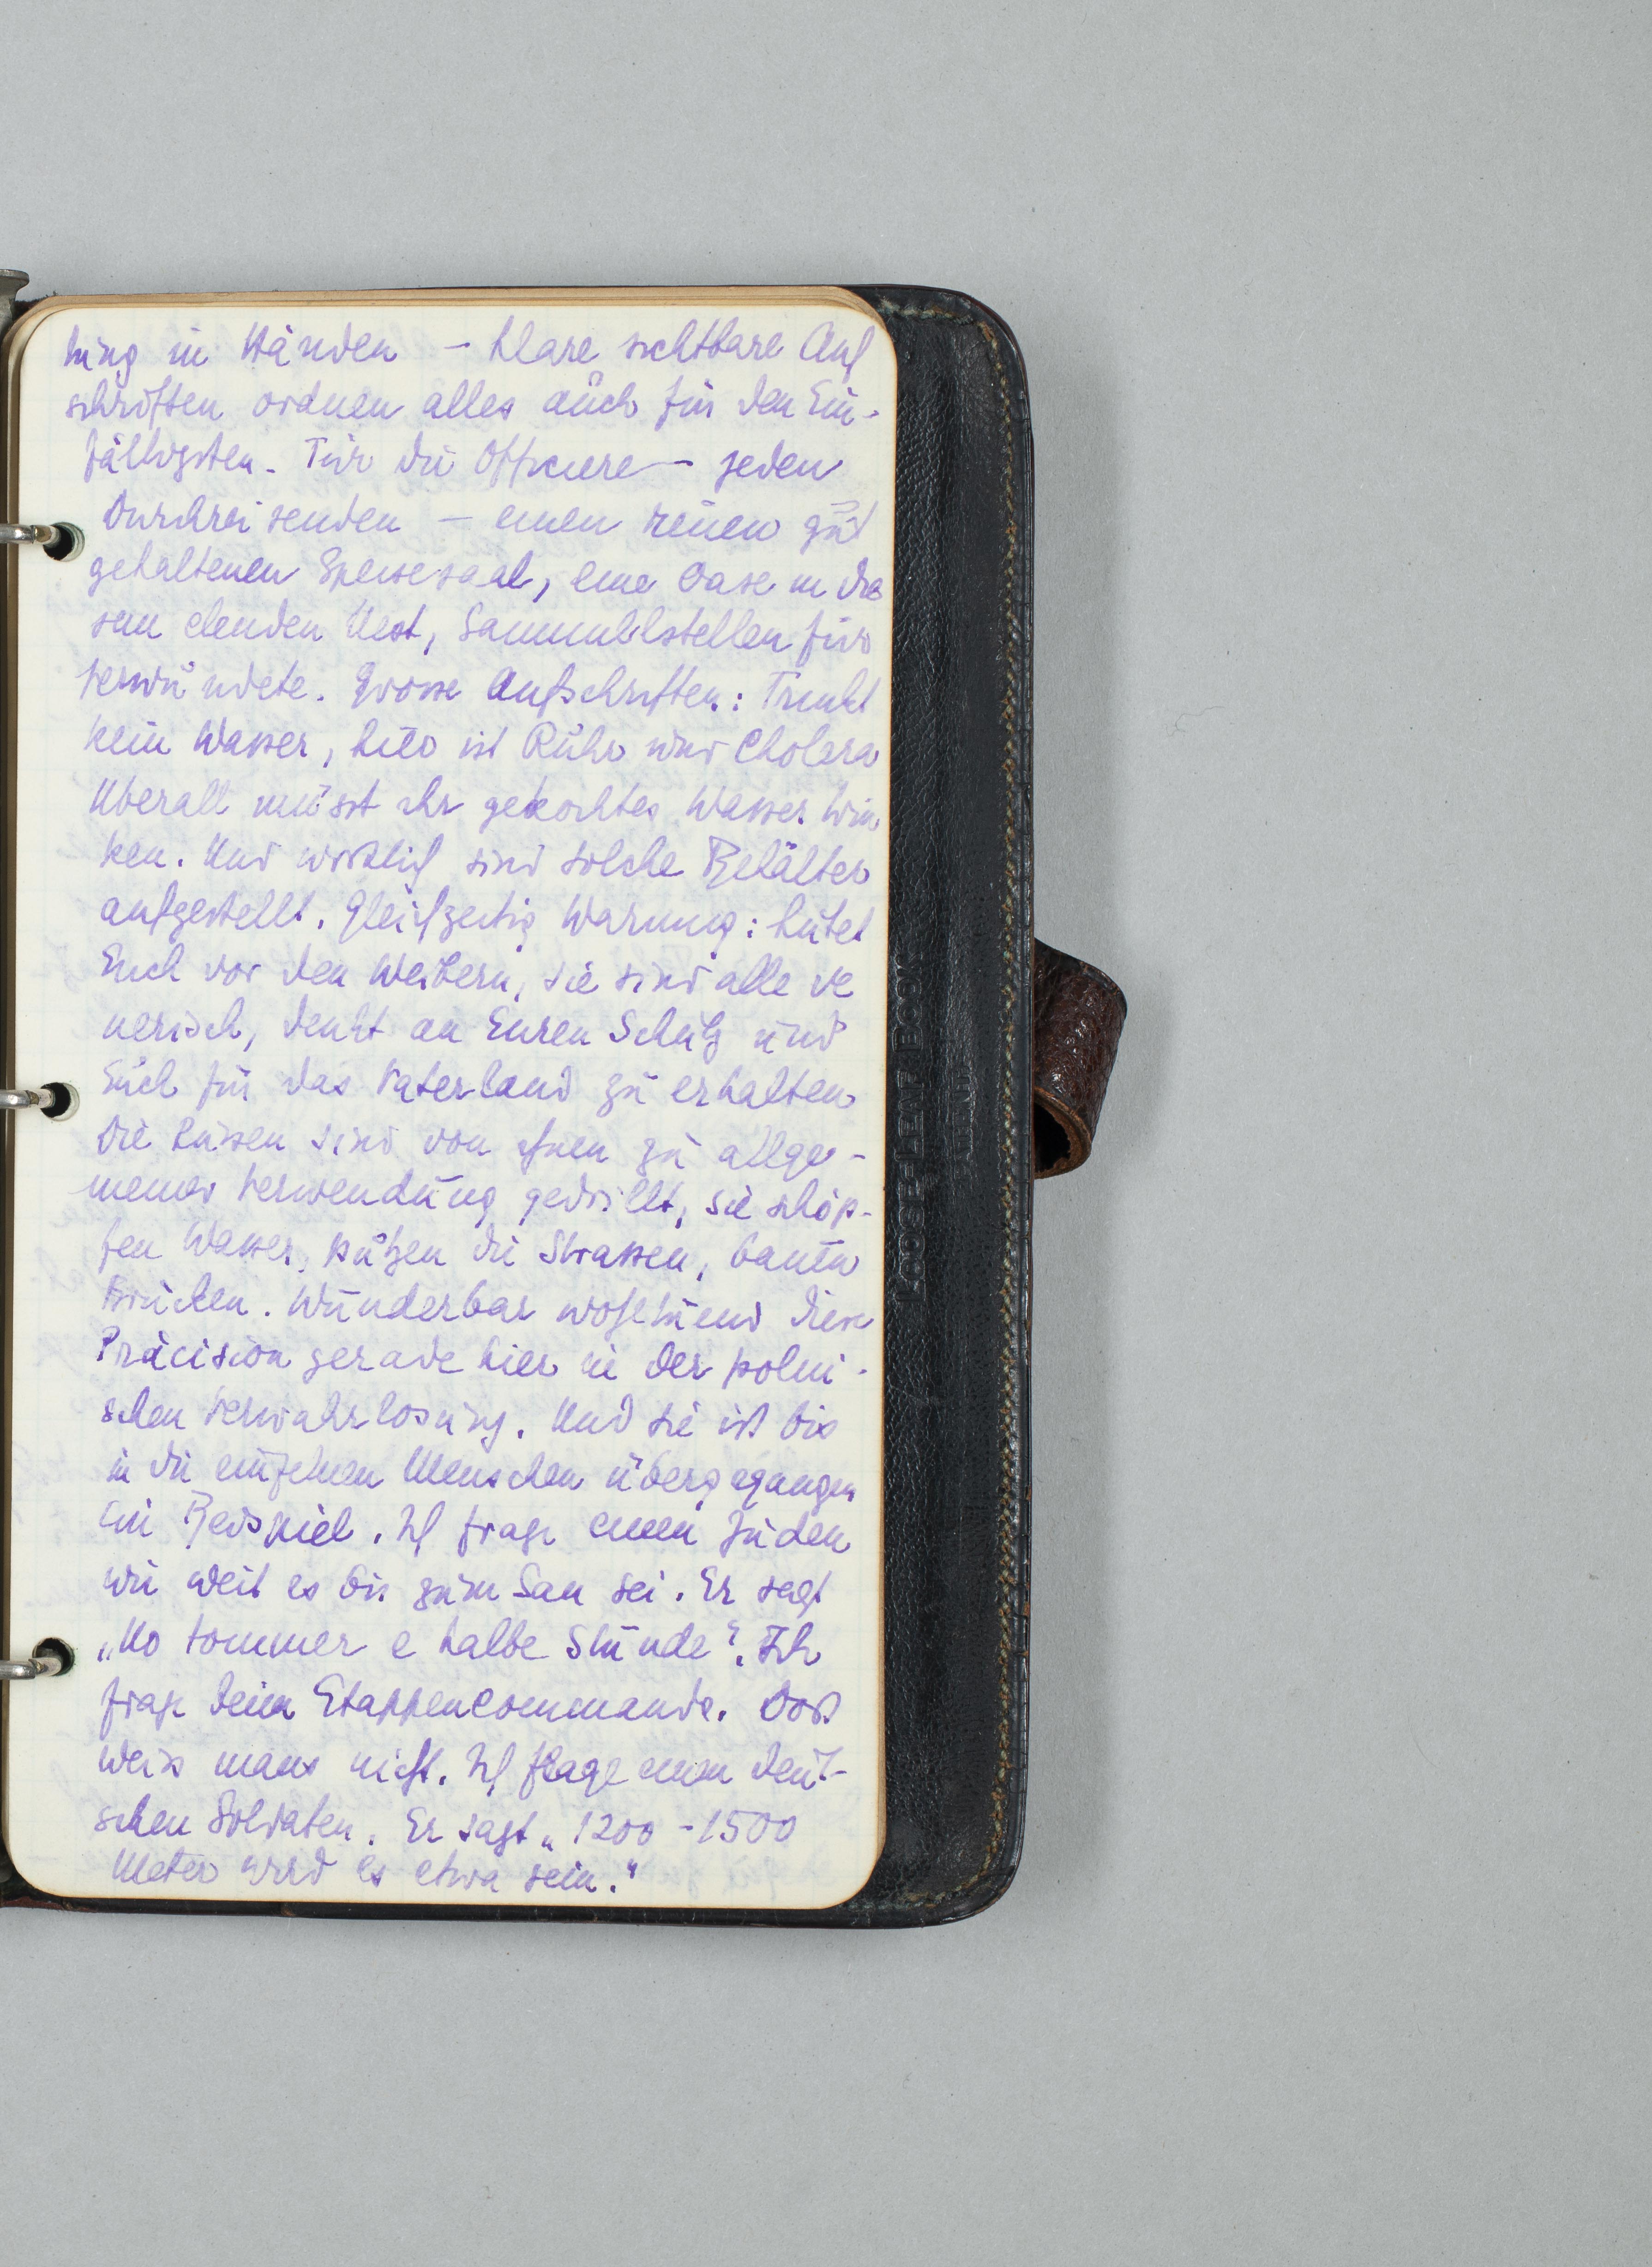 tung in Händen – klare sichtbare Auf
schriften ordnen alles auch für den Ein-
fältigsten. Für die Officiere – jeden
Durchreisenden – einen reinen gut
gehaltenen Speisesaal, eine Oase in die
sem elenden Nest, Sammelstellen für
Verwundete. Grosse Aufschriften: Trinkt
kein Wasser, hier ist Ruhr und Cholera
Überall müsst ihr gekochtes Wasser trin
ken. Und wirklich sind solche Behälter
aufgestellt. Gleichzeitig Warnung: hütet
Euch vor den Weibern, sie sind alle ve
nerisch, denkt an Euren Schutz und
Euch für das Vaterland zu erhalten
Die Russen sind von ihnen zu allge-
meiner Verwendung gedrillt, sie schöp-
fen Wasser, putzen die Strassen, bauen
Brücken. Wunderbar wohltuend diese
Präcision gerade hier in der polni-
schen Verwahrlosung. Und sie ist bis
in die einzelnen Menschen übergegangen
Ein Beispiel. Ich frage einen Juden
wie weit es bis zum San sei. Er sagt
„No tommer e halbe Stunde". Ich
frage beim Etappencommando. Dort
weis mans nicht. Ich frage einen deut-
schen Soldaten. Er sagt „1200 - 1500
Meter wird es etwa sein."
LOOSE-LEAF BOOK